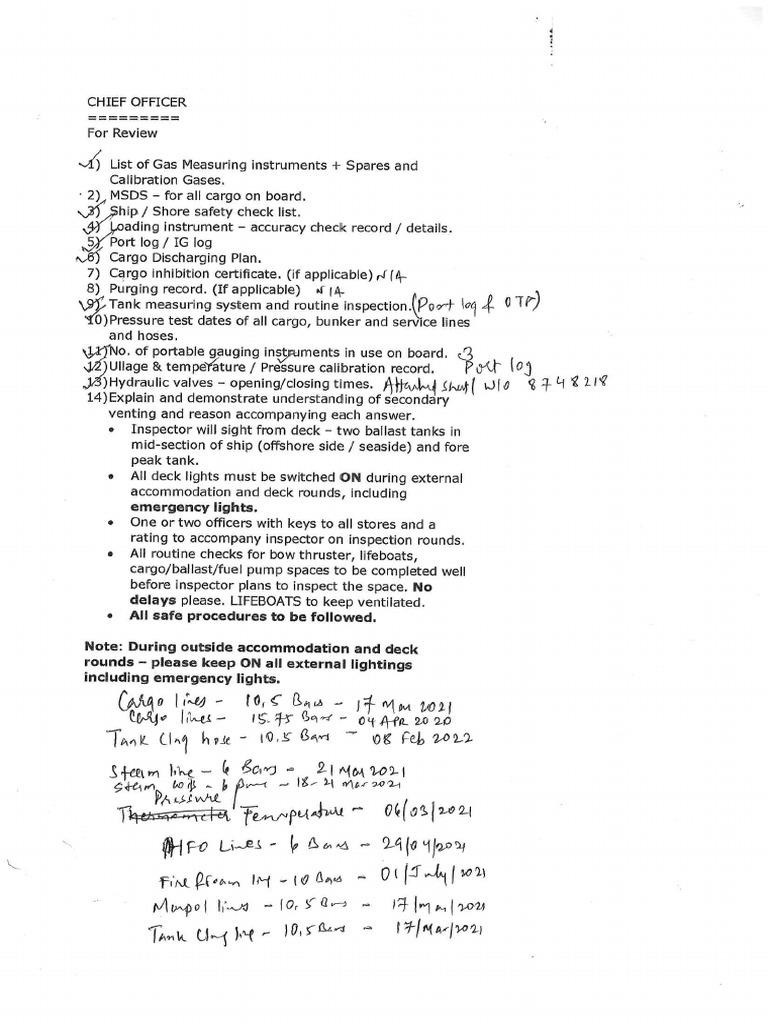 CHIEF OFFICER
=========
For Review
1) List of Gas Measuring instruments + Spares and
Calibration Gases.
2) MSDS – for all cargo on board.
3) Ship / Shore safety check list.
4) Loading instrument – accuracy check record / details.
5) Port log / IG log
6) Cargo Discharging Plan.
7) Cargo inhibition certificate. (if applicable) N/A
8) Purging record. (If applicable) N/A
9) Tank measuring system and routine inspection. (Port log & OTP)
10) Pressure test dates of all cargo, bunker and service lines
and hoses.
11) No. of portable gauging instruments in use on board. 3
12) Ullage & temperature / Pressure calibration record. Port log
13) Hydraulic valves – opening/closing times. Attached sheet/ W/O 8748218
14) Explain and demonstrate understanding of secondary
venting and reason accompanying each answer.
• Inspector will sight from deck – two ballast tanks in
mid-section of ship (offshore side / seaside) and fore
peak tank.
• All deck lights must be switched ON during external
accommodation and deck rounds, including
emergency lights.
• One or two officers with keys to all stores and a
rating to accompany inspector on inspection rounds.
• All routine checks for bow thruster, lifeboats,
cargo/ballast/fuel pump spaces to be completed well
before inspector plans to inspect the space. No
delays please. LIFEBOATS to keep ventilated.
• All safe procedures to be followed.
Note: During outside accommodation and deck
rounds – please keep ON all external lightings
including emergency lights.
Cargo lines – 10,5 Bars – 17 Mar 2021
Cargo lines – 15.75 Bars – 04 APR 2020
Tank Clng hose – 10.5 Bars – 08 Feb 2022
Steam line – 6 Bars – 21 Mar 2021
Steam – 6 – 18-21 Mar 2021
Pressure
Thermometer Temperature – 06/03/2021
HFO Lines – 6 Bars – 29/04/2021
Fire & foam – 10 Bars – 01/July/2021
Marpol lines – 10,5 Bars – 17/Mar/2021
Tank Clng line – 10,5 Bars – 17/Mar/2021